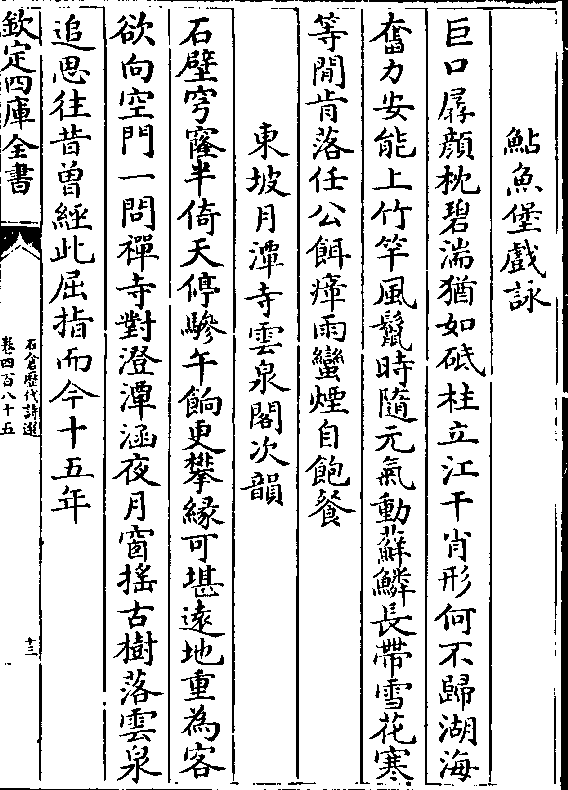 鮎魚堡戲詠
巨口孱顔枕碧湍猶如砥柱立江干肖形何不歸湖海
奮力安能上竹竿風鬣時隨元氣動蘚鱗長帶雪花寒
等閒肯落任公餌瘴雨蠻煙自飽餐
東坡月潭寺雲泉閣次韻
石壁穹窿半倚天停驂午餉更攀縁可堪逺地重為客
欲向空門一問禪寺對澄潭涵夜月窗摇古樹落雲泉
追思往昔曾經此屈指而今十五年
欽定四庫全書
石倉歴代詩選
卷四百八十五
十三